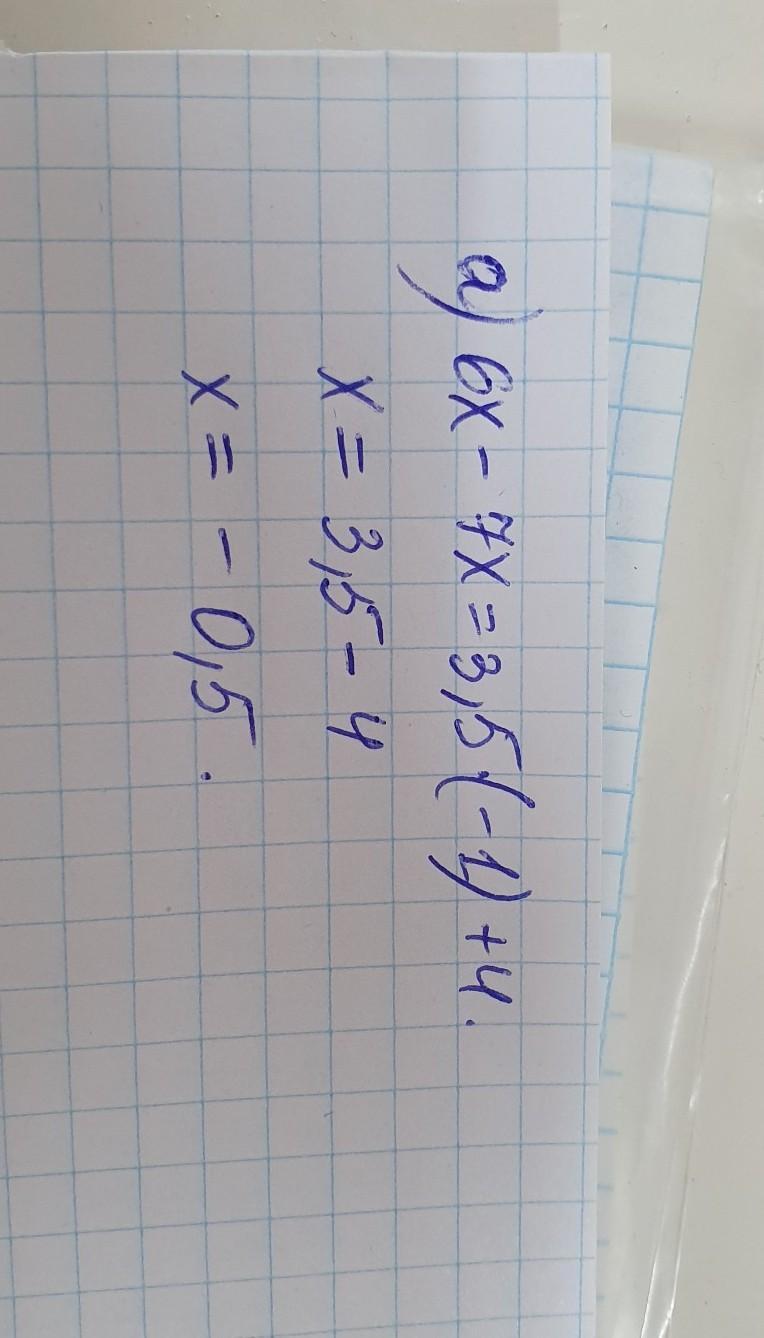 а) 6x - 7x = 3,5(-1) + 4.
x = 3,5 - 4
x = - 0,5.